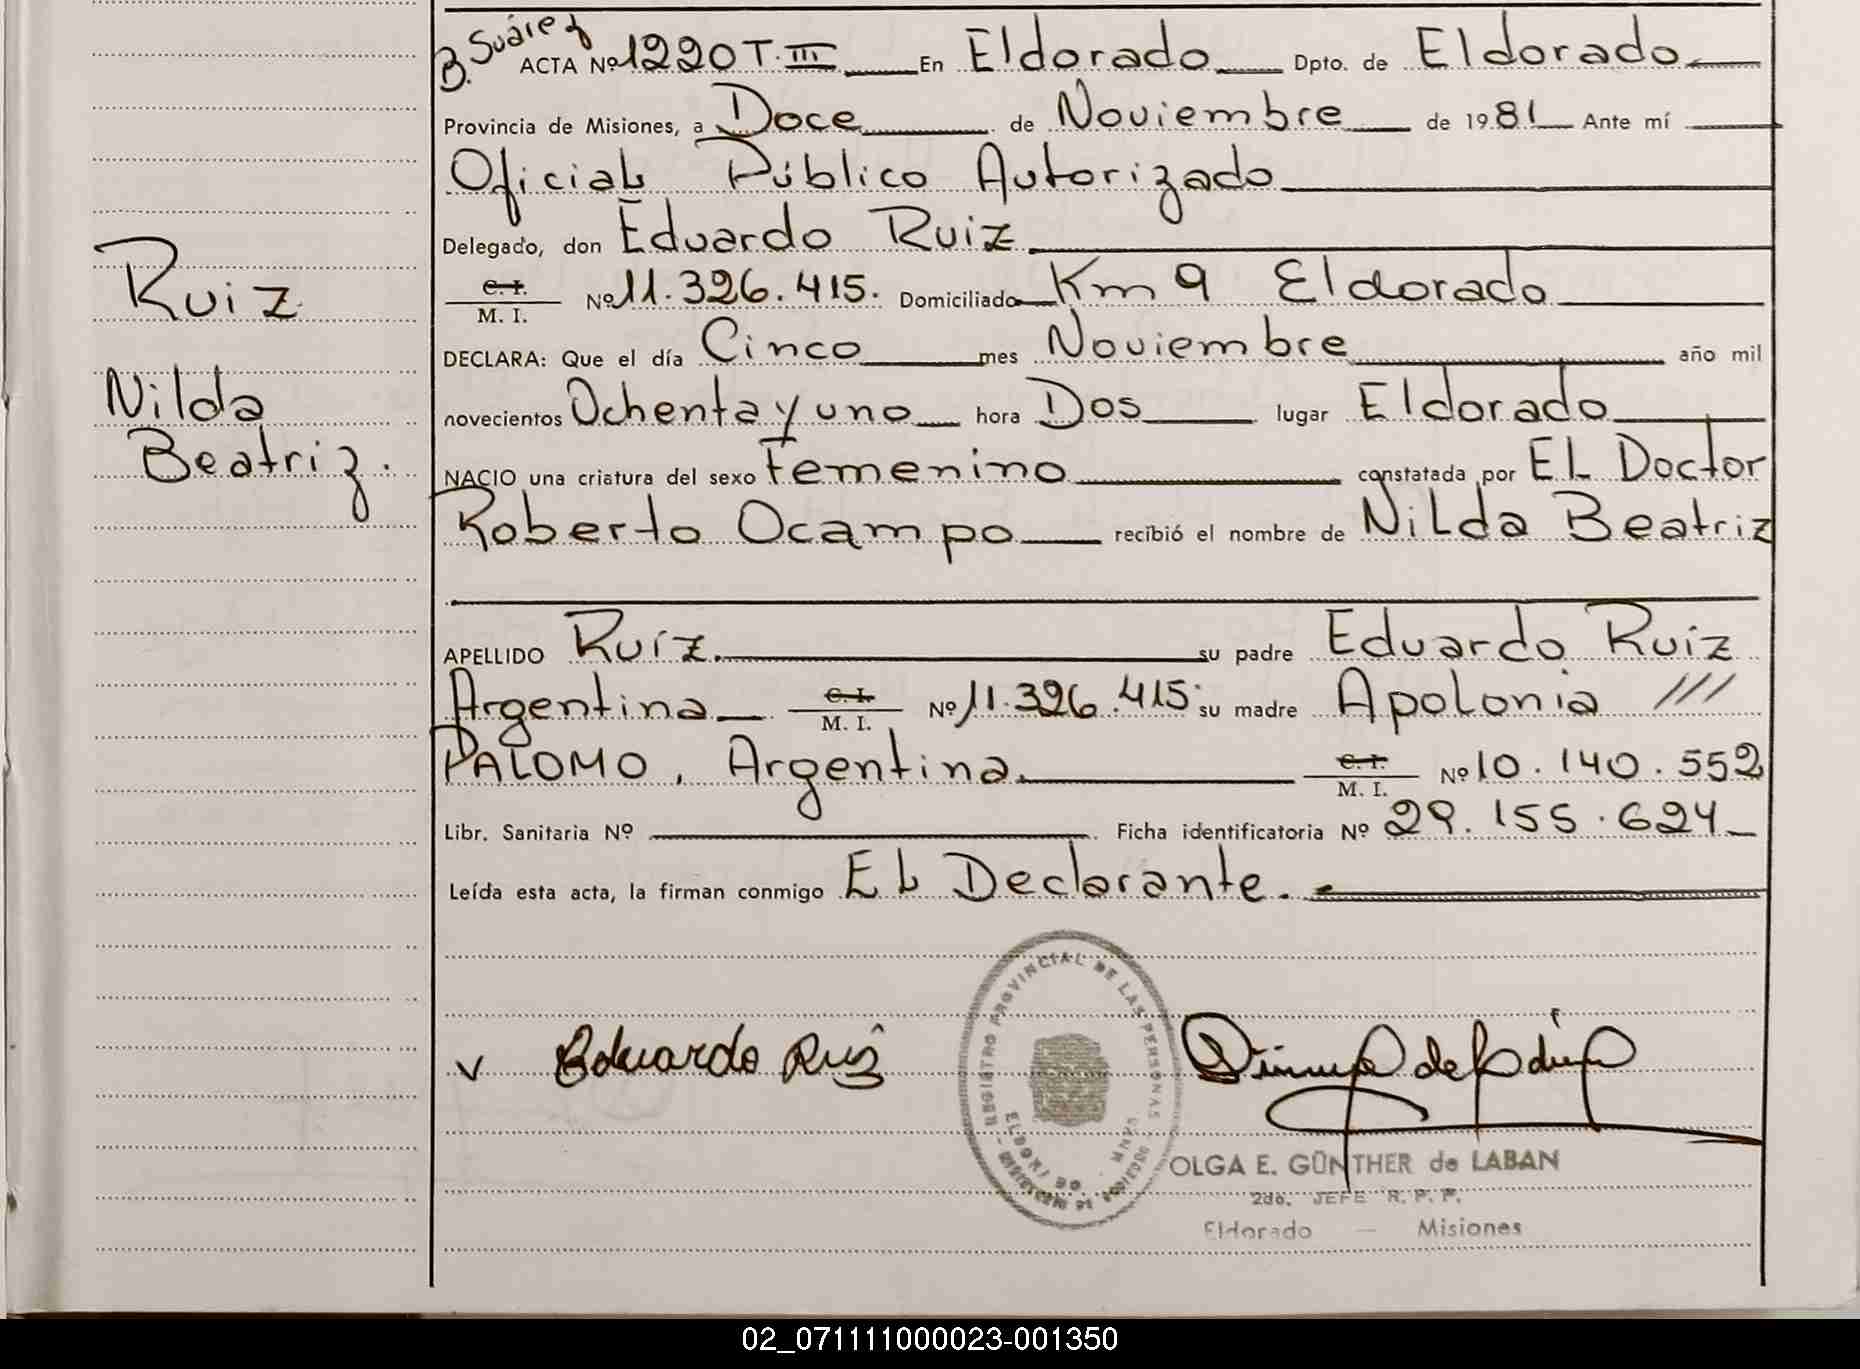 B. Suárez
ACTA Nº 1220 T. III En Eldorado Dpto. de Eldorado
Provincia de Misiones, a Doce de Noviembre de 1981 Ante mí
Oficial Público Autorizado
Delegado, don Eduardo Ruiz
C. I.
M. I. Nº 11.326.415. Domiciliado Km 9 Eldorado
DECLARA: Que el día Cinco mes Noviembre año mil
novecientos Ochenta y uno hora Dos lugar Eldorado
NACIO una criatura del sexo Femenino constatada por El Doctor
Roberto Ocampo recibió el nombre de Nilda Beatriz
APELLIDO Ruíz. su padre Eduardo Ruiz
Argentina C. I. M. I. Nº 11.326.415. su madre Apolonia ///
PALOMO, Argentina. C. I. M. I. Nº 10.140.552
Libr. Sanitaria Nº Ficha identificatoria Nº 29.155.624
Leída esta acta, la firman conmigo El Declarante.
Ruiz
Nilda
Beatriz.
v Eduardo Ruiz
REGISTRO PROVINCIAL DE LAS PERSONAS
OLGA E. GÜNTHER de LABAN
2do. JEFE R. P. P.
Eldorado — Misiones
02_071111000023-001350